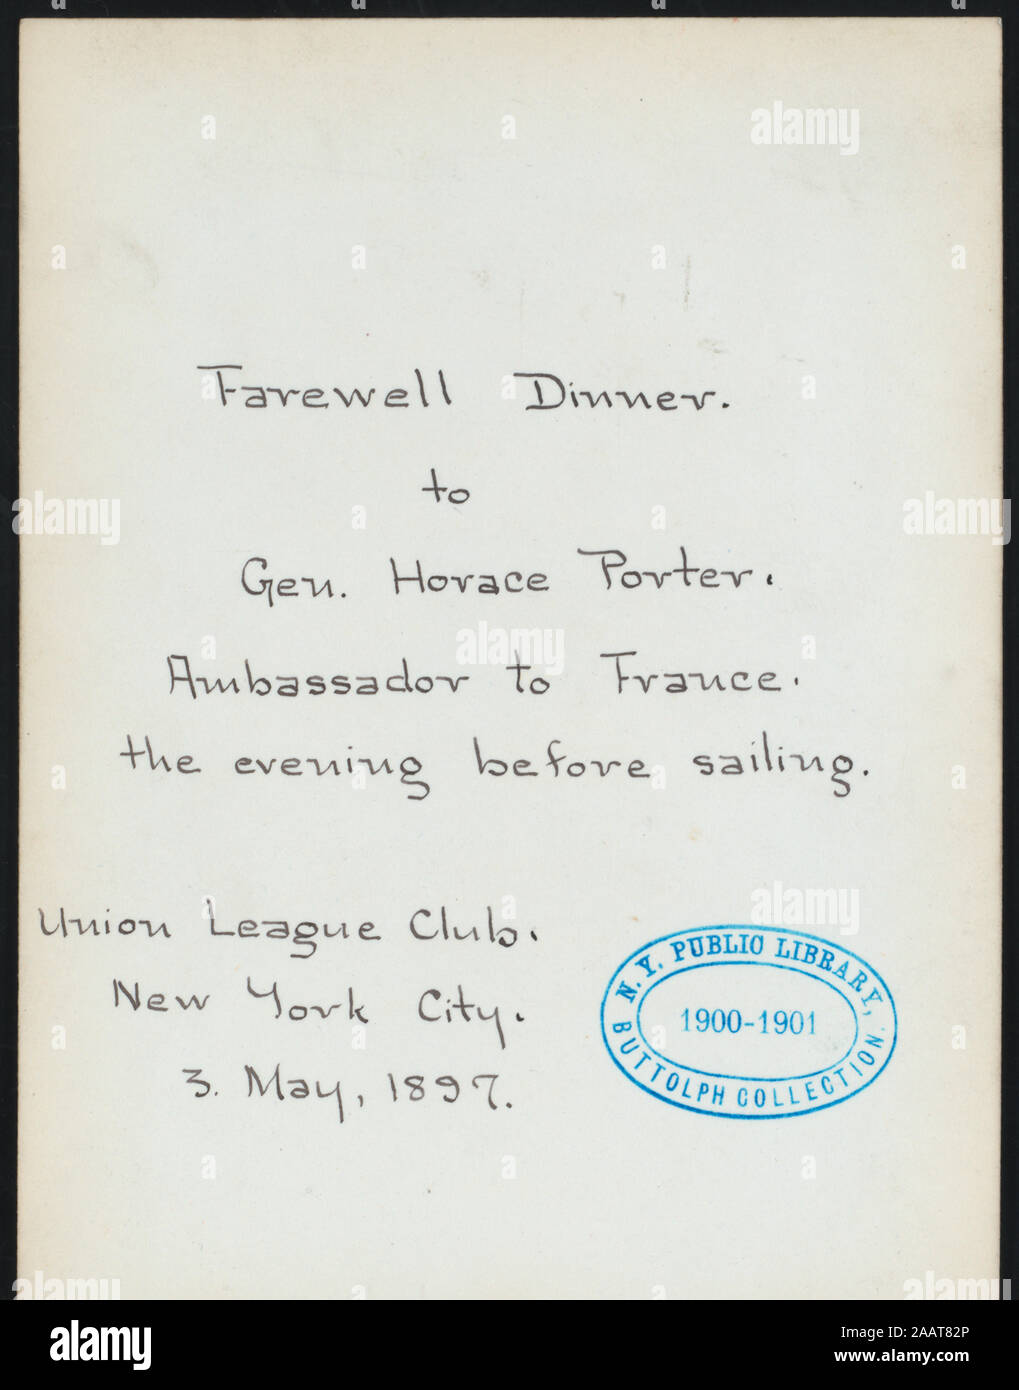 Farewell Dinner.
to
Gen. Horace Porter.
Ambassador to France.
the evening before sailing.
Union League Club.
New York City.
3. May, 1897.
N. Y. PUBLIC LIBRARY,
1900-1901
BUTTOLPH COLLECTION.
alamy
Image ID: 2AAT82P
www.alamy.com